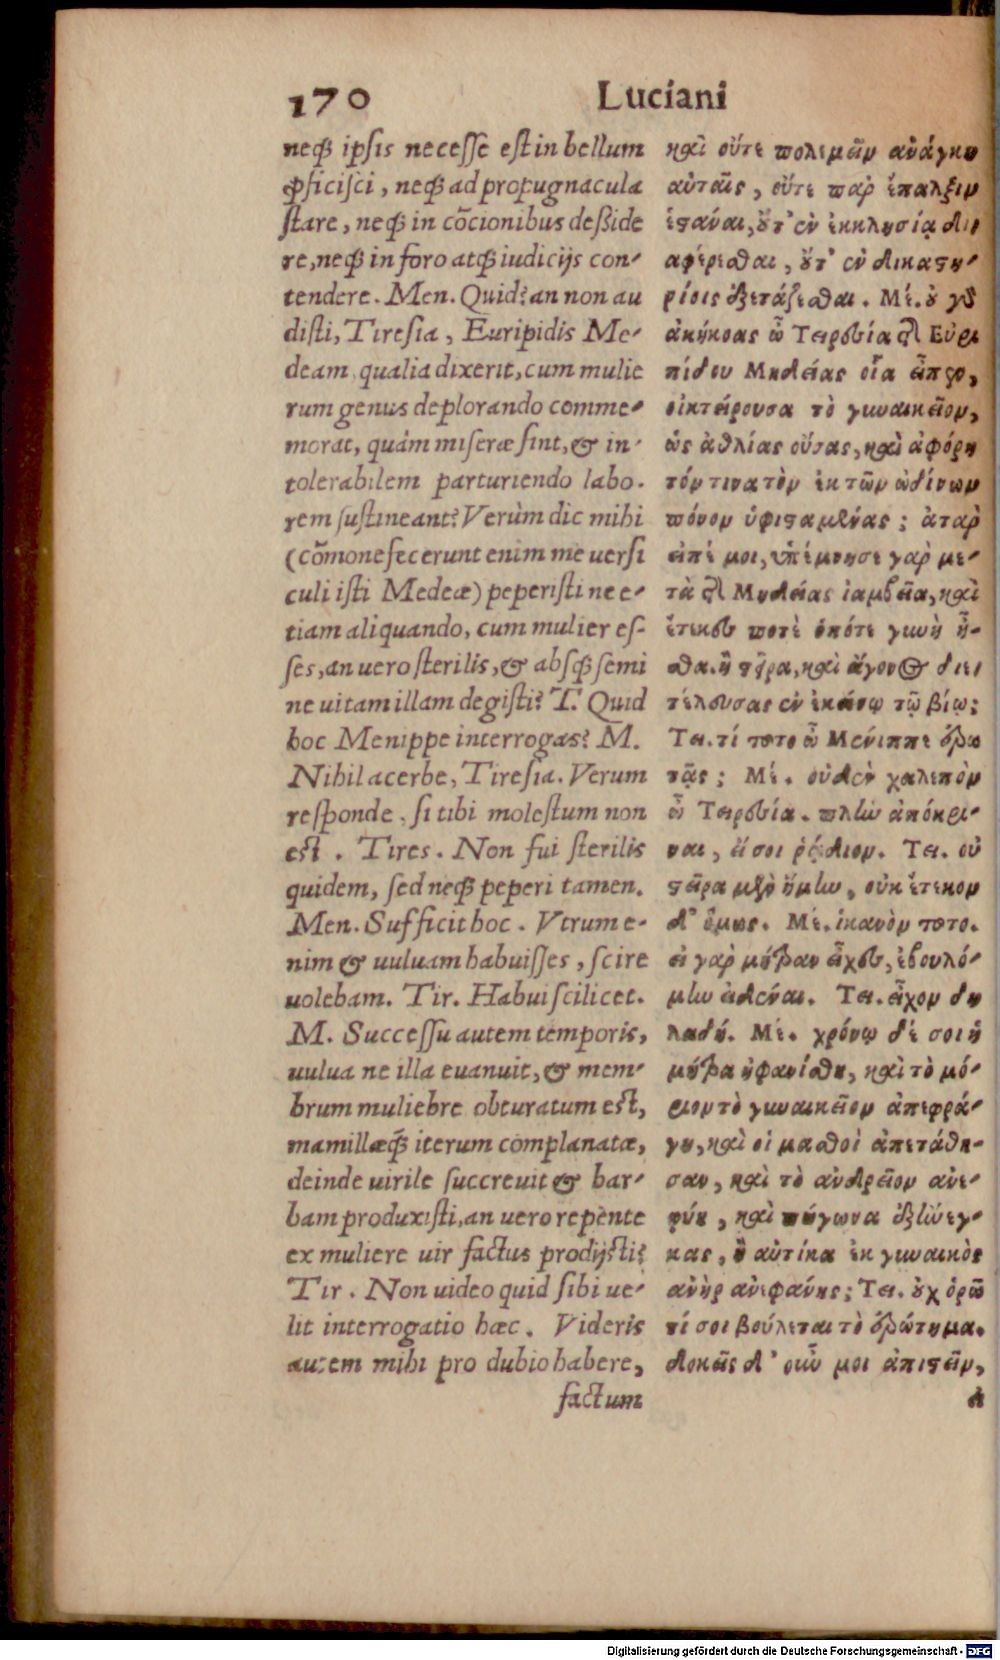 170 Luciani
neq́ ipsis necesse est in bellum
ꝓficisci, neq́ ad propugnacula
stare, neq́ in cōcionibus desside
re, neq́ in foro atq́ iudicijs con-
tendere. Men. Quid? an non au
disti, Tiresia, Euripidis Me-
deam qualia dixerit, cum mulie
rum genus deplorando comme-
morat, quàm miseræ sint, & in-
tolerabilem parturiendo labo-
rem sustineant? Verùm dic mihi
(cōmonefecerunt enim me uersi
culi isti Medeæ) peperisti ne e-
tiam aliquando, cum mulier es-
ses, an uero sterilis, & absq́ semi
ne uitam illam degisti? T. Quid
hoc Menippe interrogas? M.
Nihil acerbe, Tiresia. Verum
responde, si tibi molestum non
est. Tires. Non fui sterilis
quidem, sed neq́ peperi tamen.
Men. Sufficit hoc. Vtrum e-
nim & uuluam habuisses, scire
uolebam. Tir. Habui scilicet.
M. Successu autem temporis,
uulua ne illa euanuit, & mem-
brum muliebre obturatum est,
mamillæq́ iterum complanatæ,
deinde uirile succreuit & bar-
bam produxisti, an uero repente
ex muliere uir factus prodijsti?
Tir. Non uideo quid sibi ue-
lit interrogatio hæc. Videris
autem mihi pro dubio habere,
factum
καὶ οὔτε πολεμεῖν ἀνάγκη
αὐταῖς, οὔτε παρ' ἔπαλξιν
ἑστάναι, οὔτ' ἐν ἐκκλησίᾳ δια
φέρεσθαι, οὔτ' ἐν δικαστη-
ρίοις ἐξετάζεσθαι. Μέ. οὐ γὰρ
ἀκήκοας ὦ Τειρεσία τῆς Εὐρι
πίδου Μηδείας οἷα εἶπεν,
οἰκτείρουσα τὸ γυναικεῖον,
ὡς ἀθλίας οὔσας, καὶ ἀφόρη
τόν τινα τὸν ἐκ τῶν ὠδίνων
πόνον ὑφισταμένας; ἀτὰρ
εἰπέ μοι, ὑπέμνησε γάρ με-
τὰ τῆς Μηδείας ἰαμβεῖα, καὶ
ἔτεκες ποτὲ ὁπότε γυνὴ ἦ-
σθα, ἢ στεῖρα, καὶ ἄγονος διε
τέλεσας ἐν ἐκείνῳ τῷ βίῳ;
Τει. τί τοῦτο ὦ Μένιππε ἐρω
τᾷς; Μέ. οὐδὲν χαλεπὸν
ὦ Τειρεσία. πλὴν ἀπόκρι-
ναι, εἴ σοι ῥᾴδιον. Τει. οὐ
στεῖρα μὲν ἤμην, οὐκ ἔτεκον
δ' ὅμως. Μέ. ἱκανὸν τοῦτο.
εἰ γὰρ μήτραν εἶχες, ἐβουλό-
μην εἰδέναι. Τει. εἶχον δη
λαδή. Μέ. χρόνῳ δέ σοι ἡ
μήτρα ἠφανίσθη, καὶ τὸ μό-
ριον τὸ γυναικεῖον ἀπεφρά-
γη, καὶ οἱ μασθοὶ ἀπετάθη-
σαν, καὶ τὸ ἀνδρεῖον ἀνε-
φύη, καὶ πώγωνα ἐξήνεγ-
κας, ἢ αὐτίκα ἐκ γυναικὸς
ἀνὴρ ἀνεφάνης; Τει. οὐχ ὁρῶ
τί σοι βούλεται τὸ ἐρώτημα.
δοκεῖς δ' οὖν μοι ἀπιστεῖν,
Digitalisierung gefördert durch die Deutsche Forschungsgemeinschaft - DFG